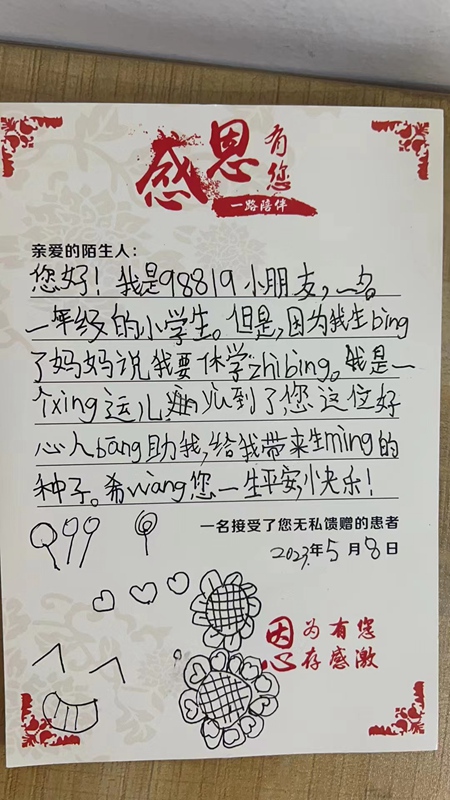 感恩有您
一路陪伴
亲爱的陌生人：
您好！我是98819小朋友，
一年级的小学生。但是，因为我生bing
了妈妈说我要休学zhibing。我是一
个xing运儿 到了您这位好
心人bāng助我，给我带来生mìng的
种子。希wàng您一生平安快乐！
一名接受了您无私馈赠的患者
2023年5月8日
因为有您
心存感激